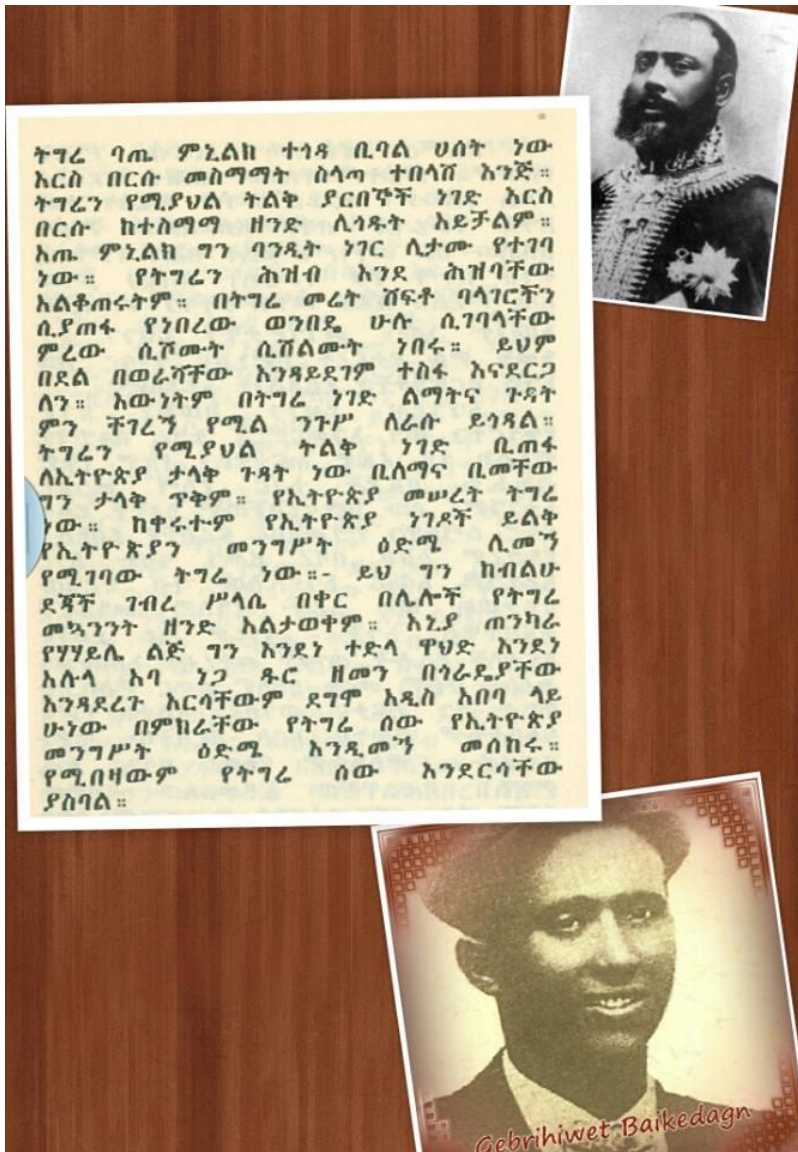 ትግሬ ባጤ ምኒልክ ተጎዳ ቢባል ሀሰት ነው
እርስ በርሱ መስማማት ስላጣ ተበላሸ እንጅ።
ትግሬን የሚያህል ትልቅ ያርበኞች ነገድ እርስ
በርሱ ከተስማማ ዘንድ ሊጎዱት አይቻልም።
አጤ ምኒልክ ግን ባንዲት ነገር ሊታሙ የተገባ
ነው። የትግሬን ሕዝብ እንደ ሕዝባቸው
አልቆጠሩትም። በትግሬ መሬት ሸፍቶ ባላገሮችን
ሲያጠፋ የነበረው ወንበዴ ሁሉ ሲገባላቸው
ምረው ሲሾሙት ሲሸልሙት ነበሩ። ይህም
በደል በወራሻቸው እንዳይደገም ተስፋ እናደርጋ
ለን። እውነትም በትግሬ ነገድ ልማትና ጉዳት
ምን ቸገረኝ የሚል ንጉሥ ለራሱ ይጎዳል።
ትግሬን የሚያህል ትልቅ ነገድ ቢጠፋ
ለኢትዮጵያ ታላቅ ጉዳት ነው ቢለማና ቢመቸው
ግን ታላቅ ጥቅም። የኢትዮጵያ መሠረት ትግሬ
ነው። ከቀሩተም የኢትዮጵያ ነገዶች ይልቅ
የኢትዮጵያን መንግሥት ዕድሜ ሊመኝ
የሚገባው ትግሬ ነው።- ይህ ግን ከብልሁ
ደጃች ገብረ ሥላሴ በቀር በሌሎች የትግሬ
መኳንንት ዘንድ አልታወቀም። እኒያ ጠንካራ
የሃሃይሌ ልጅ ግን እንደነ ተድላ ዋህድ እንደነ
አሉላ አባ ነጋ ዱሮ ዘመን በጎራዴያቸው
እንዳደረጉ እርሳቸውም ደግሞ አዲስ አበባ ላይ
ሁነው በምክራቸው የትግሬ ሰው የኢትዮጵያ
መንግሥት ዕድሜ እንዲመኝ መሰከሩ።
የሚበዛውም የትግሬ ሰው እንደርሳቸው
ያስባል።
Gebrihiwet Baikedagn